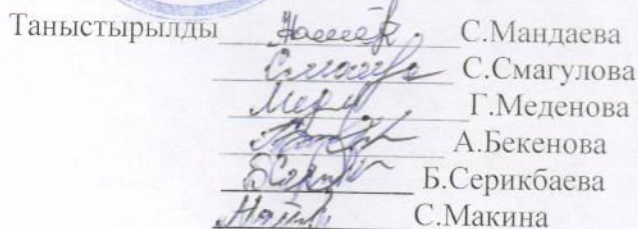 Таныстырылды С.Мандаева
С.Смагулова
Г.Меденова
А.Бекенова
Б.Серикбаева
С.Макина